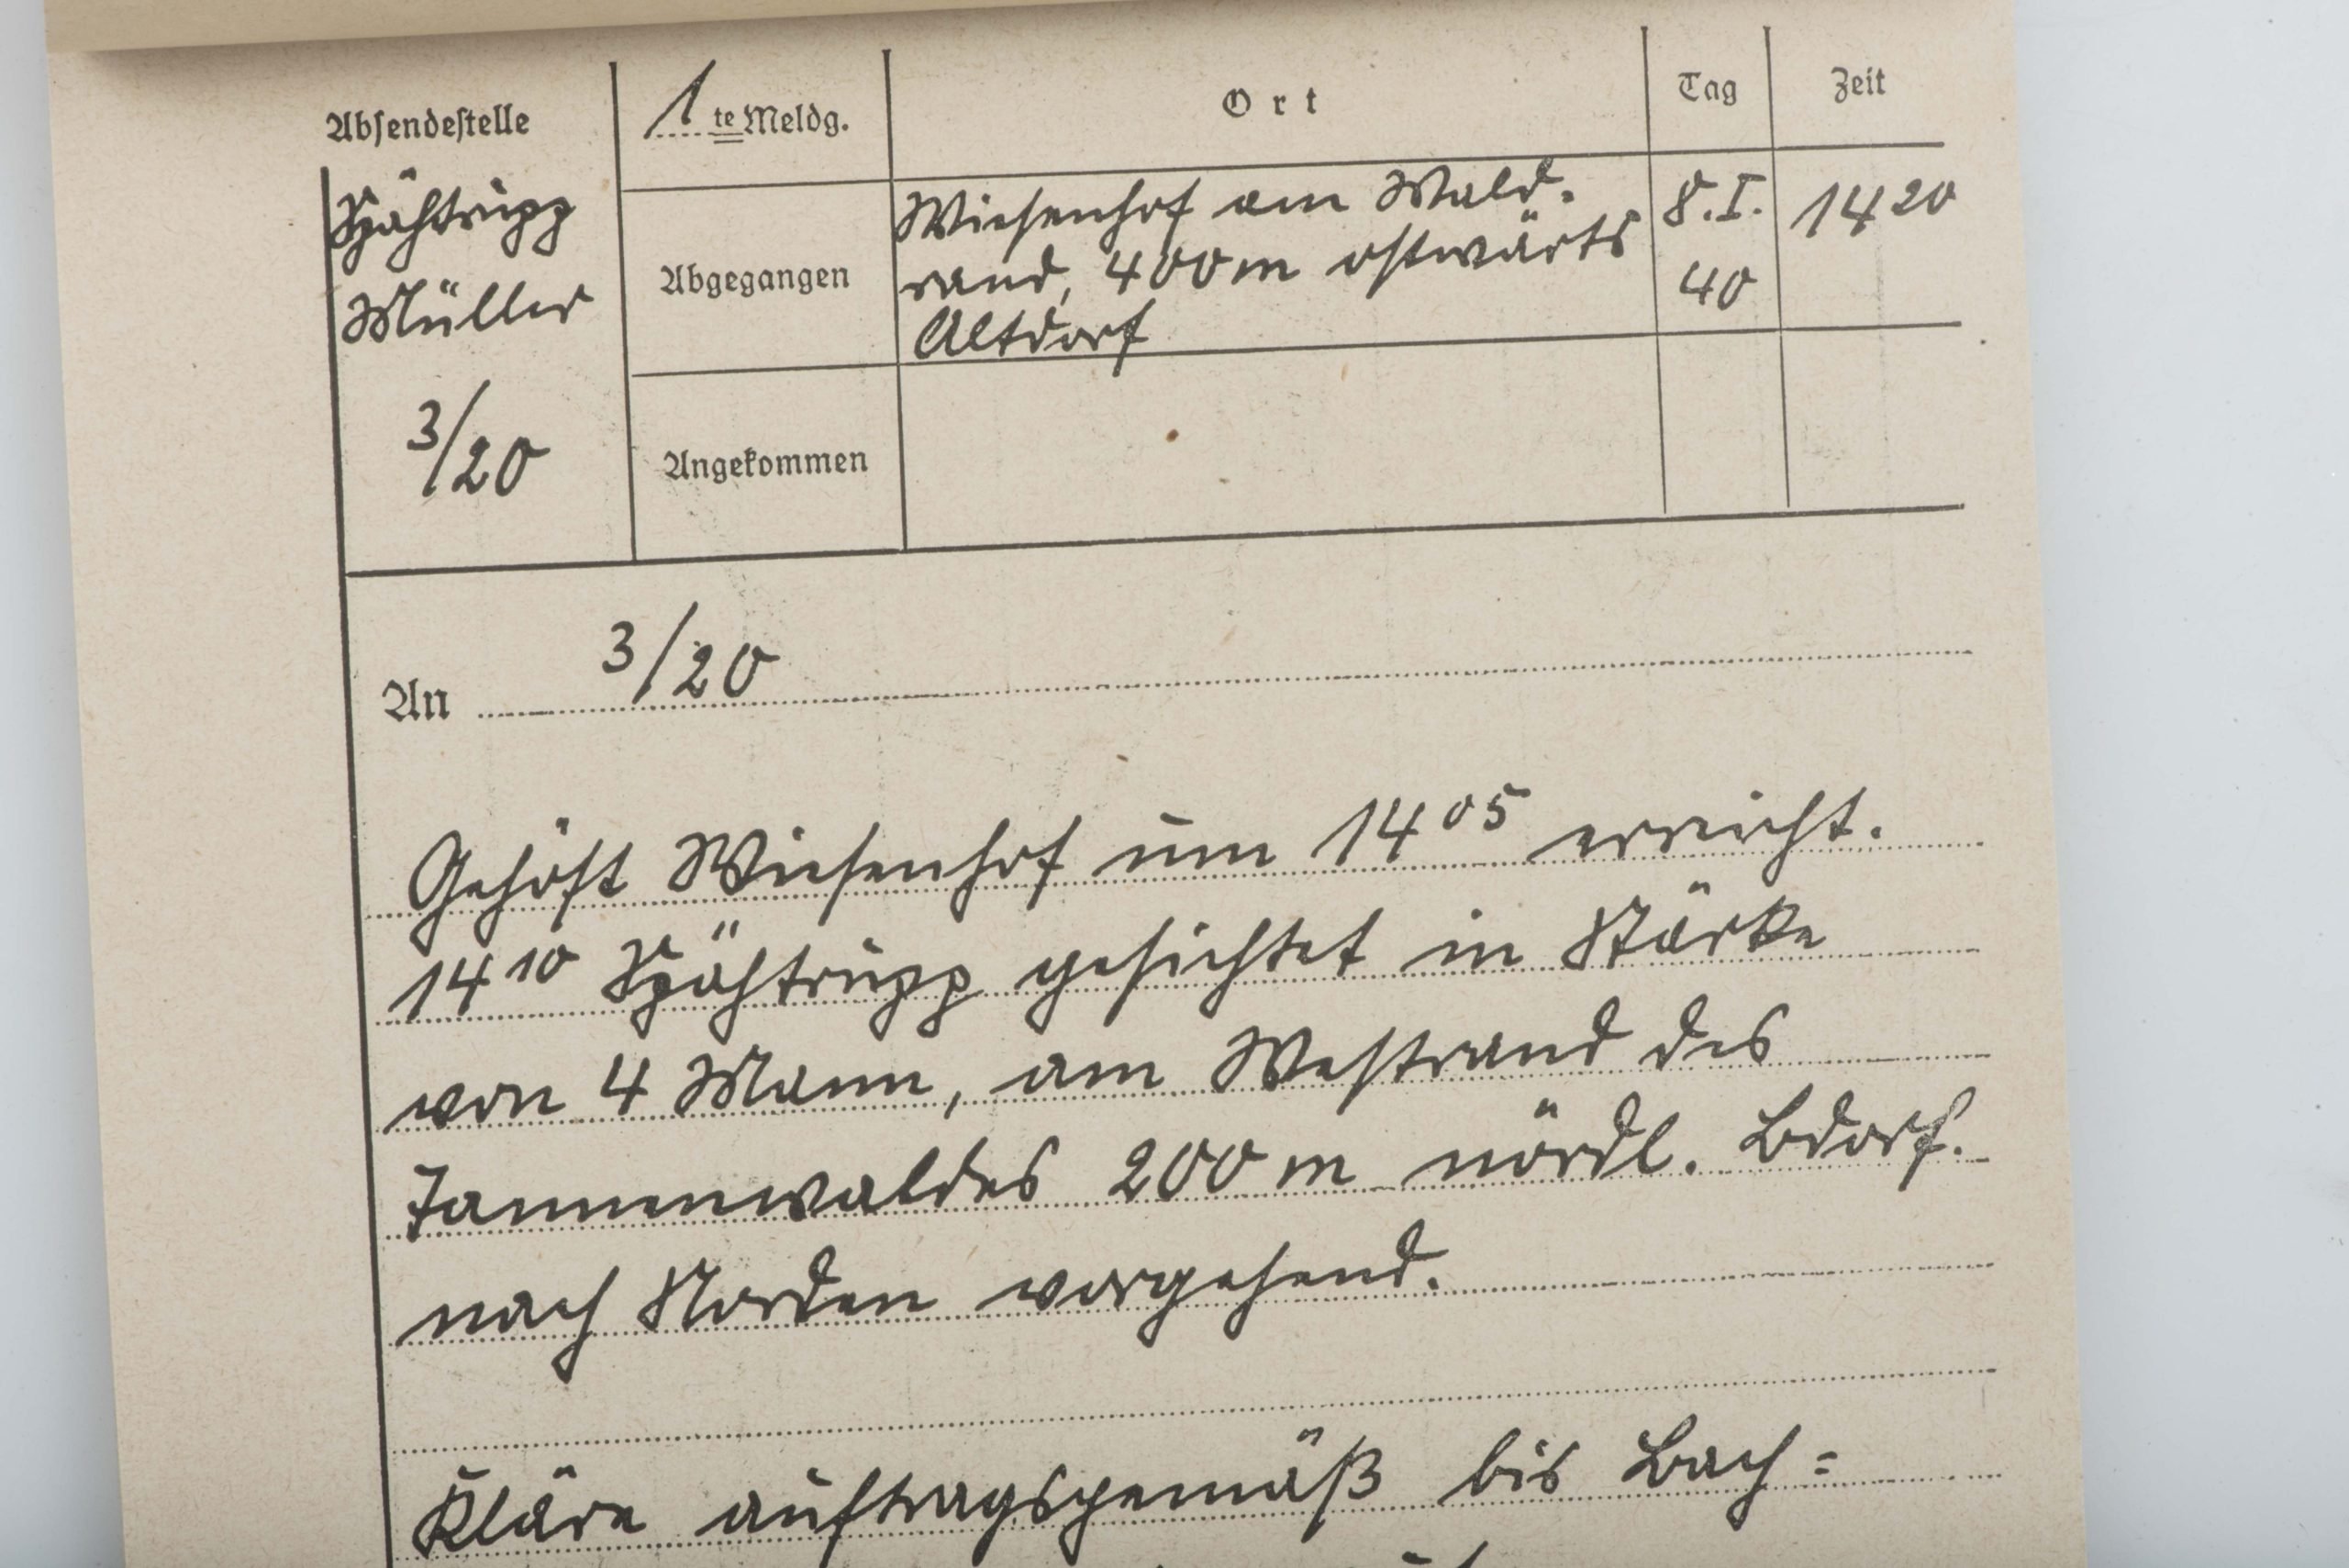 Absendestelle
1te Meldg.
Ort
Tag
Zeit
Spähtrupp
Müller
3/20
Abgegangen
Wiesenhof am Wald-
rand, 400m ostwärts
Altdorf
8.I.
40
14 20
Angekommen
An 3/20
Gehöft Wiesenhof um 14 05 erreicht.
14 10 Spähtrupp gesichtet in Stärke
von 4 Mann, am Westrand des
Tannenwaldes 200 m nördl. Bdorf.
nach Norden vorgehend.
Kläre auftragsgemäß bis Bach=